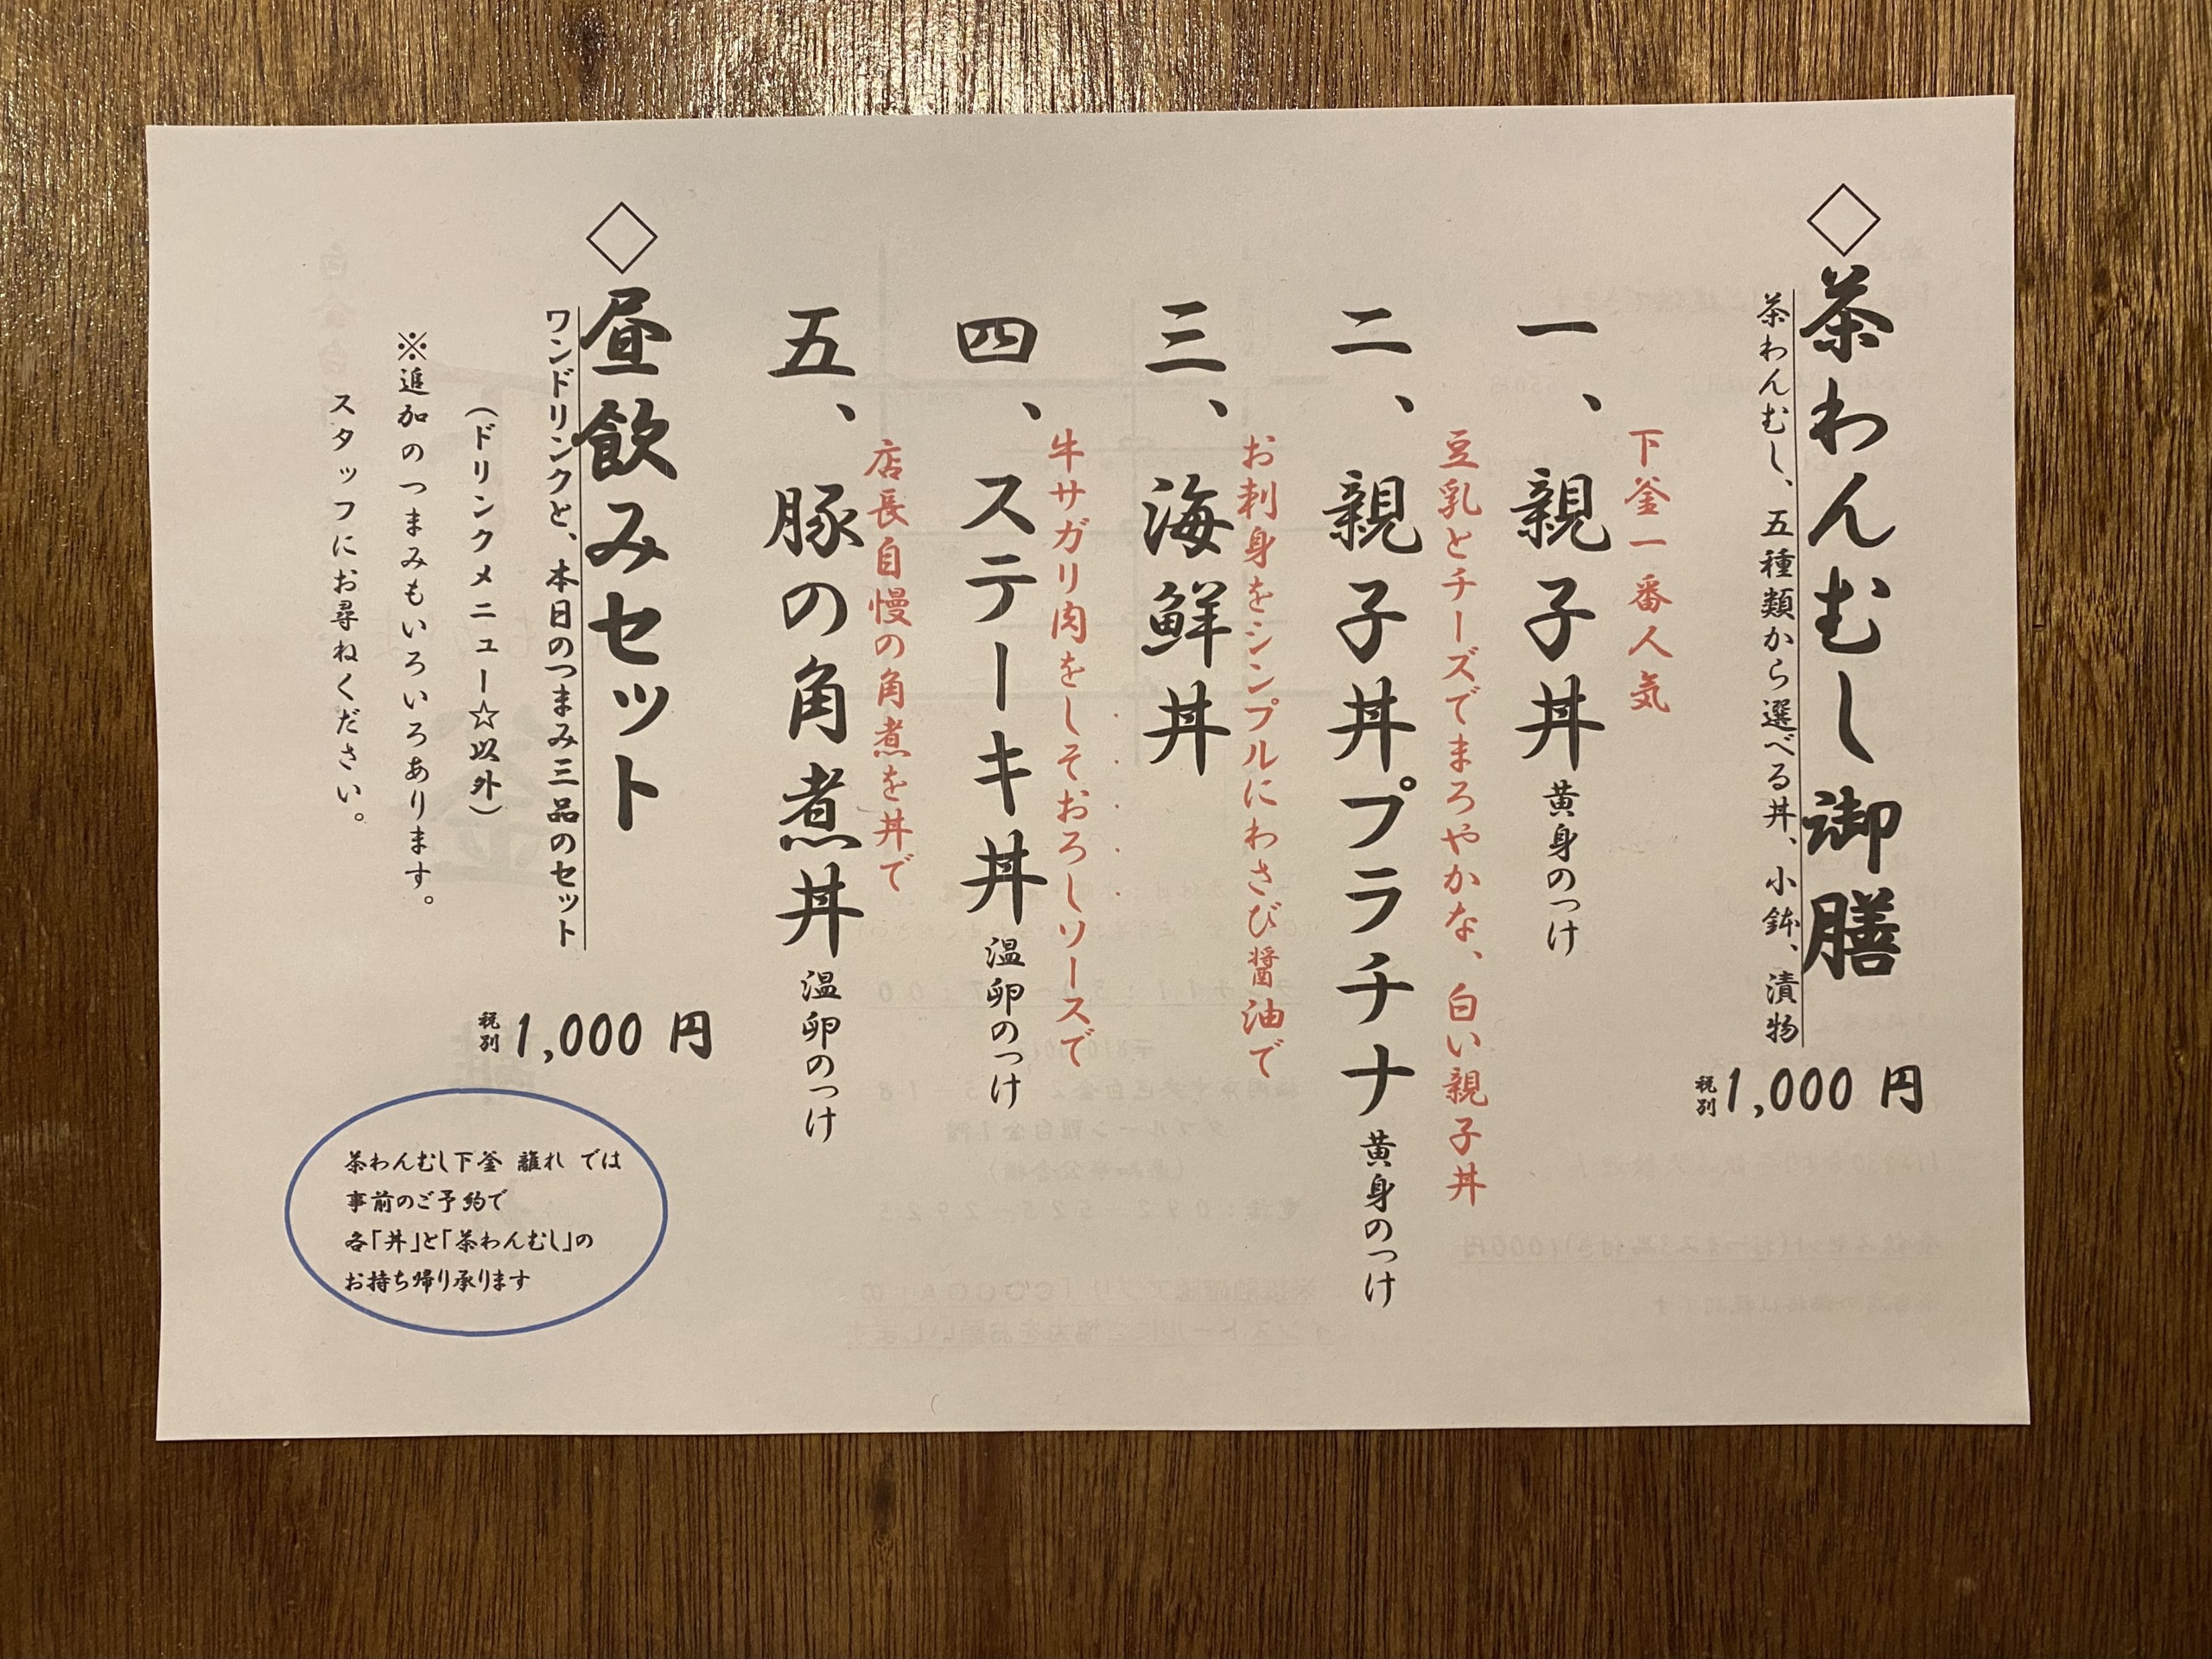 ◇茶わんむし御膳
茶わんむし、五種類から選べる丼、小鉢、漬物
税別1,000円
下釜一番人気
一、親子丼 黄身のっけ
豆乳とチーズでまろやかな、白い親子丼
二、親子丼プラチナ 黄身のっけ
お刺身をシンプルにわさび醤油で
三、海鮮丼
牛サガリ肉をしそおろしソースで
四、ステーキ丼 温卵のっけ
店長自慢の角煮を丼で
五、豚の角煮丼 温卵のっけ
◇昼飲みセット
ワンドリンクと、本日のつまみ三品のセット
(ドリンクメニュー☆以外)
税別1,000円
※追加のつまみもいろいろあります。
スタッフにお尋ねください。
茶わんむし下釜 離れ では
事前のご予約で
各「丼」と「茶わんむし」の
お持ち帰り承ります